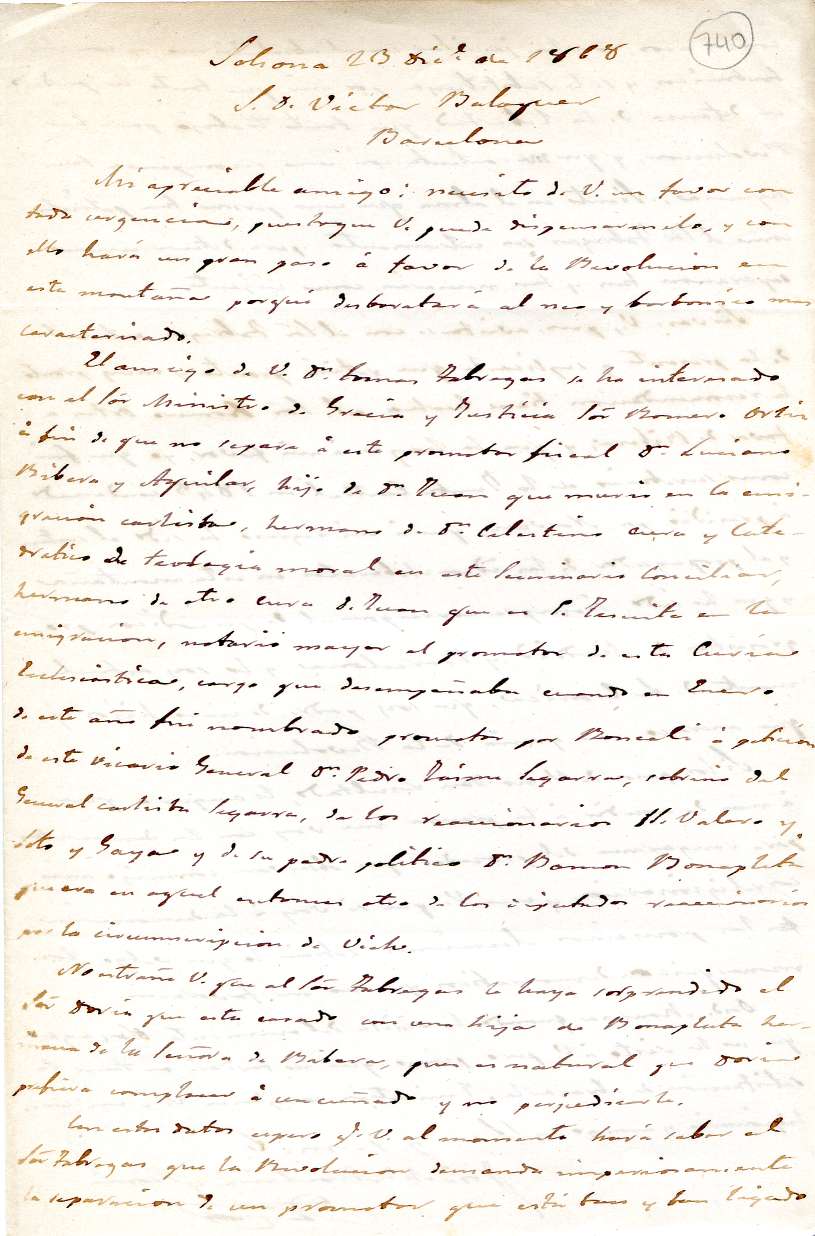 740
Solsona 23 Dic.e de 1868
S. D. Victor Balaguer
Barcelona
Mi apreciable amigo: necesito de V. un favor con
toda urgencia, puesto que V. puede dispensarmelo, y con
ello hará un gran paso á favor de la Revolucion en
esta montaña porqué desbaratará al neo y borbonico mas
caracterizado.
El amigo de V. Dn. Tomas Fabregas se ha interesado
con el Sór Ministro de Gracia y Justicia Sór Romero Ortiz
á fin de que no separe á este promotor fiscal Dn. Luciano
Ribera y Aguilar, hijo de Dn. Juan que murió en la emi-
gración carlista, hermano de Dn. Celestino cura y Cate-
dratico de teologia moral en este Seminario Conciliar,
hermano de otro cura D. Juan que es P. Jesuita en la
emigracion, notario mayor el promotor de esta Curia
Eclesiástica, cargo que desempeñaba cuando en Enero
de este año fué nombrado promotor por Roncali á peticion
de este Vicario General Dn. Pedro Jaime Segarra, sobrino del
General carlista Segarra, de los reaccionarios SS. Valero y
Soto y Gaya y de su padre politico Dn. Ramon Bonaplata
que era en aquel entonces otro de los diputados reaccionarios
por la circunscripcion de Vich.
No estrañe V. que al Sór Fabregas le haya sorprendido el
Sór Doria que esta casado con una hija de Bonaplata her-
mana de la Señora de Ribera, pues es natural que Doria
prefiera complacer á un cuñado y no perjudicarle.
Con estos datos espero q.e V. al momento hará saber al
Sór Fabregas que la Revolucion demanda imperiosamente
la separacion de un promotor que está tan y tan ligado